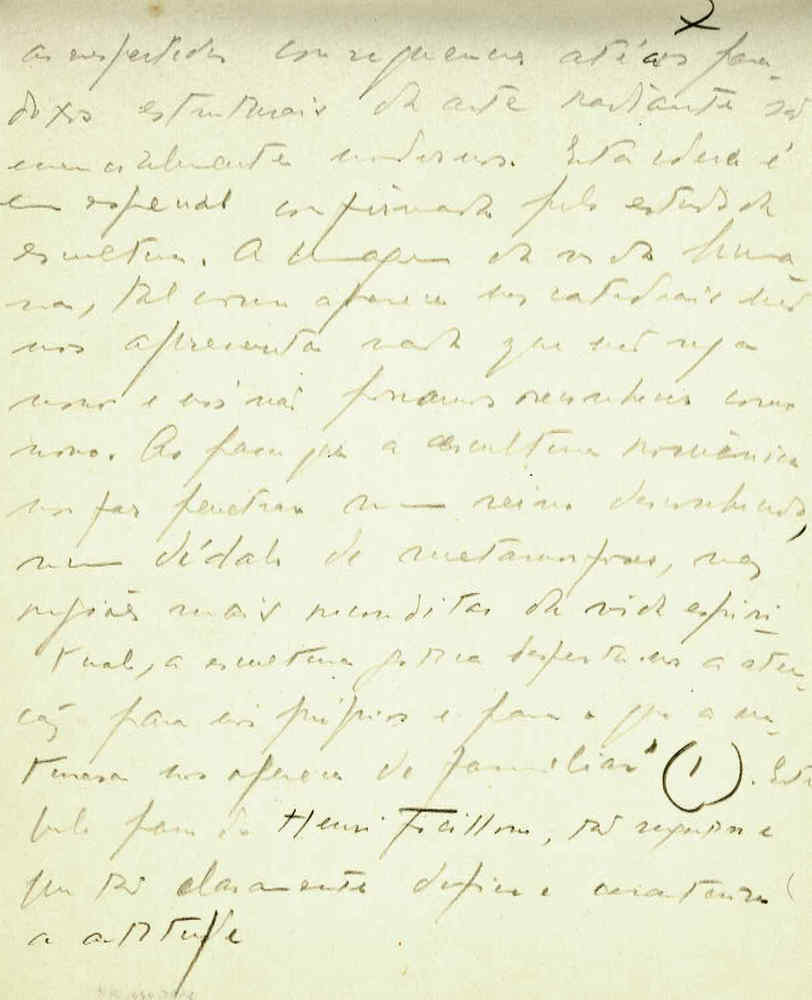 as respectivas consequencias até aos para-
doxos estruturais da arte radiante são
essencialmente modernos. Esta ideia é
em especial confirmada pelo estudo da
escultura. A imagem da vida huma-
na, tal como aparece nas catedrais não
nos apresenta nada que não seja
novo e nós não possamos reconhecer como
novo. Ao passo que a escultura românica
nos faz penetrar num reino desconhecido,
num dédalo de metamorfoses, nas
regiões mais reconditas da vida espiri-
tual, a escultura gótica desperta-nos a aten-
ção para nós próprios e para o que a na-
tureza nos oferece de familiar" (1). Esta
de Henri Focillon, tão
que tão claramente define e caracteriza
a atitude